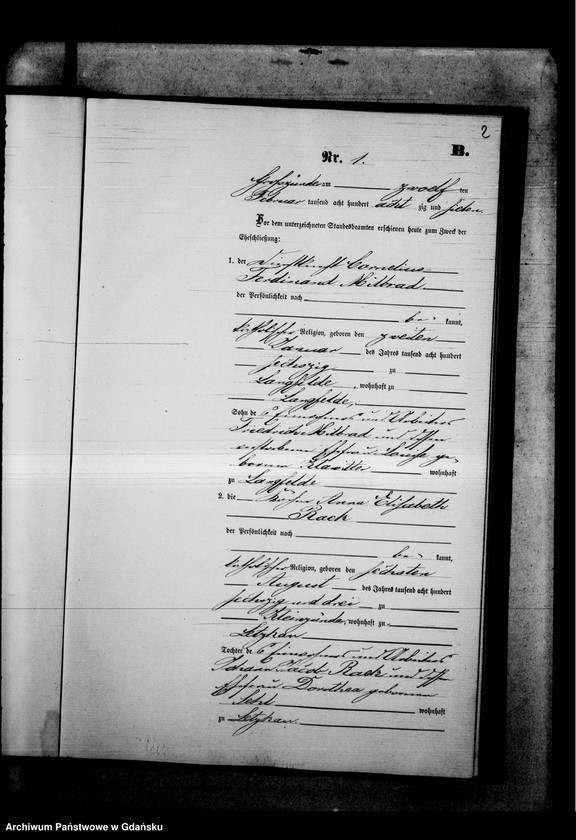 2
B.
Nr. 1.
am zwoelf ten
Februar tausend acht hundert acht zig und sieben.
Vor dem unterzeichneten Standesbeamten erschienen heute zum Zweck der
Eheschließung:
1. der Dienstknecht Cornelius
Ferdinand Milbrad
der Persönlichkeit nach
be kannt,
katholischer Religion, geboren den zweiten
Januar des Jahres tausend acht hundert
sechszig zu
Langfelde, wohnhaft zu
Langfelde,
Sohn des Einwohners und Arbeiters
Friedrich Milbrad und dessen
verstorbenen Ehefrau Luise ge-
borenen wohnhaft
zu Langfelde
2. die Anna Elisabeth
Rack
der Persönlichkeit nach
be kannt,
katholischer Religion, geboren den sechsten
August des Jahres tausend acht hundert
sechszig und drei zu
Kleinzünder, wohnhaft zu
Letzkau
Tochter des Einwohners und Arbeiters
Johann Jacob Rack und dessen
Ehefrau Dorothea geborenen
wohnhaft
zu Letzkau.
Archiwum Państwowe w Gdańsku